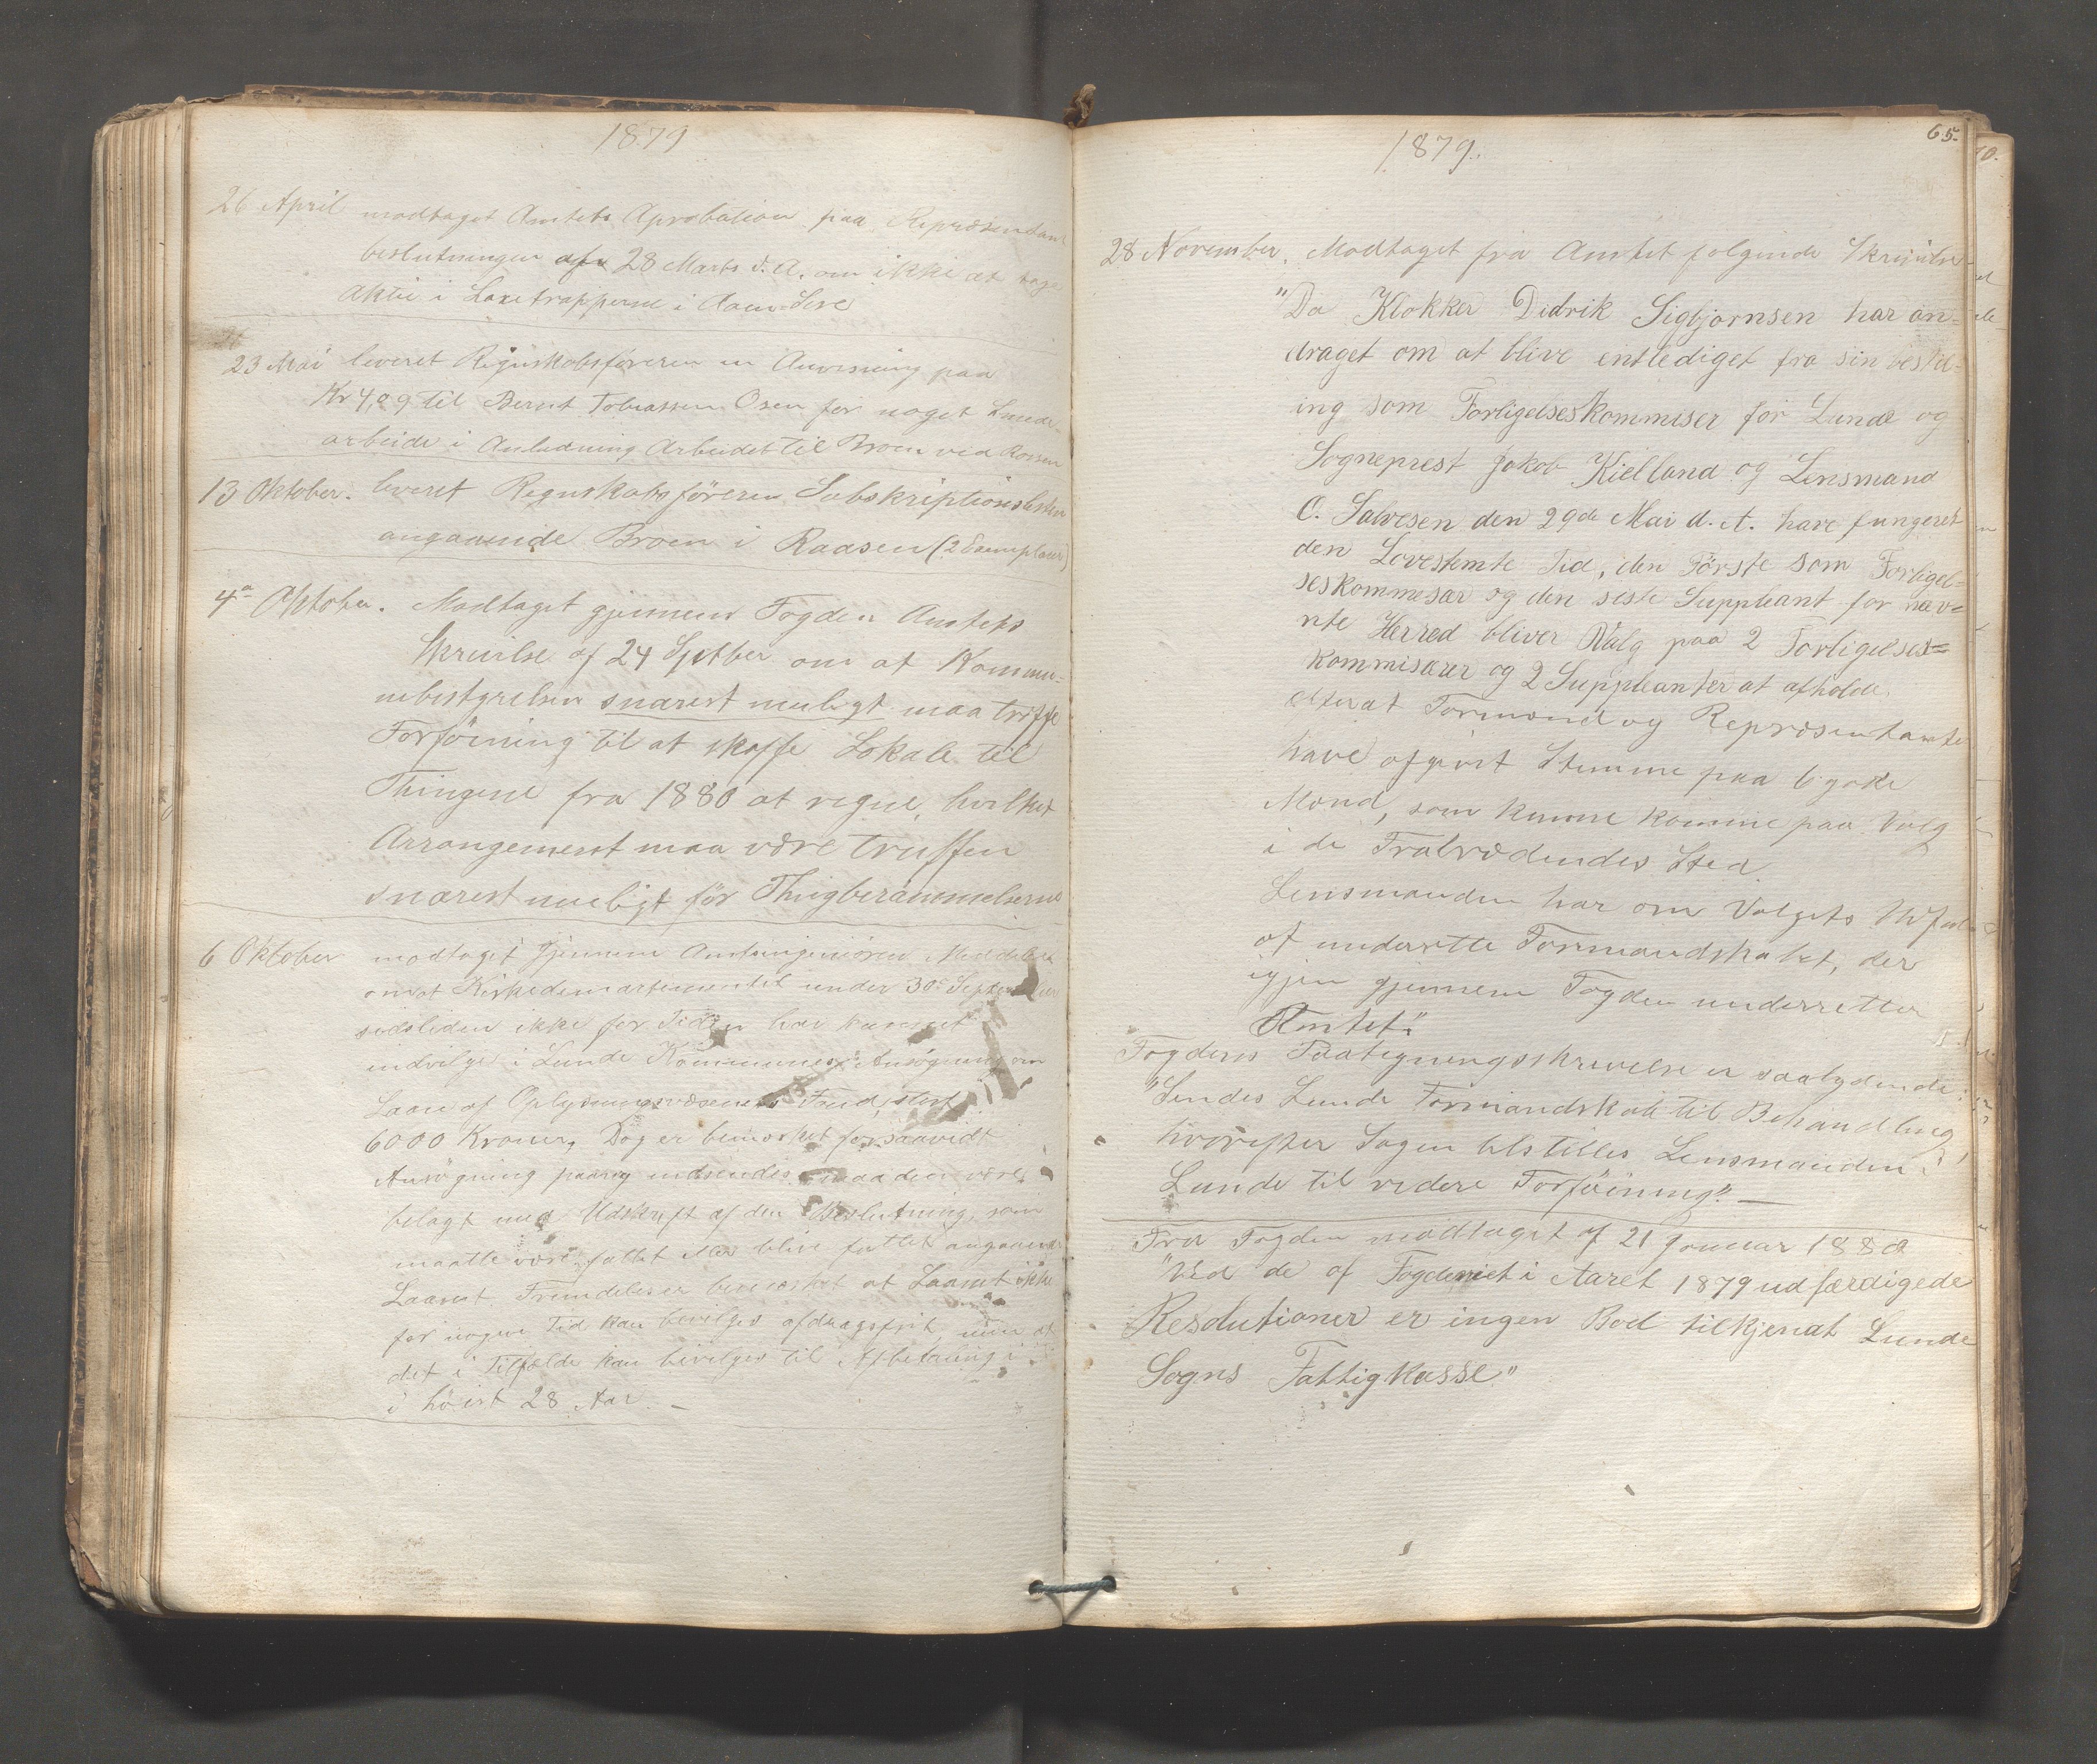 1879
26 April modtaget Amtets Aprobation paa Repræsentant
beslutningen af 28 Marts d. A. om ikke at tage
Aktie i Laxetrapperne i Aaen Sire
23 Mai leveret Regnskabsføreren en Anvisning paa
Kr 4,09 til Bernt Tobiassen Osen for noget
arbeide i Anledning Arbeidet til Broen ved
13 Oktober. leveret Regnskabsföreren Subskriptionslisten
angaaende Broen i Raasen (2 Exemplarer)
4de Oktober. Modtaget gjennem Fogden Amtets
Skrivelse af 24 Septber om at Kommu=
nebestyrelsen snarest muligt maa træffe
Forföining til at skaffe Lokale til
Thingene fra 1880 at regne, hvilket
Arrangement maa være truffen
snarest muligt för Thingberammelserne
6 Oktober modtaget gjennem Amtsingeniören Meddelelse
om at Kirkedepartementet under 30 September
sidstleden ikke for Tiden har kunnet
indvilge i Lunde Kommunes Ansögning om
Laan af Oplysningsvæsenets Fond, stort
6000 Kroner, Dog er bemærket forsaavidt
Ansögning paany indsendes maa den være
belagt med Udskrift af den Beslutning, som
maatte være fattet eller blive fattet angaaende
Laanet. Fremdeles er bemærket at Laanet ikke
for nogen Tid kan bevilges afdragsfrit, men at
det i Tilfælde kan bevilges til Afbetaling i
i höiest 28 Aar. —
65.
1879.
28 November. Modtaget fra Amtet folgende Skrivelse
"Da Klokker Didrik Sigbjørnsen har an=
draget om at blive entlediget fra sin bestil=
ing som Forligelseskommiser for Lunde og
Sogneprest Jakob Kielland og Lensmand
O. Salvesen den 29de Mai d. A. have fungeret
den Lovestemte Tid, den Förste som Forligel=
seskommesær og den siste Suppleant for næv=
nte Herred bliver Valg paa 2 Forligelses=
kommisærer og 2 Suppleanter at afholde
efterat Formænd og Repræsentanter
have afgivet Stemme paa 6 gode
Mænd, som kunne komme paa Valg
i de Fratrædendes Sted.
Lensmanden har om Valgets Udfald
at underrette Formandskabet, der
igjen gjennem Fogden underretter
Amtet."
Fogdens Paategningsskrivelse er saalydende:
"Sendes Lunde Formandskab til Behandling,
hvorefter Sagen tilstilles Lensmanden i
Lunde til videre Forföining". —
Fra Fogden modtaget af 21 Januar 1880
"Ved de af Fogderiet i Aaret 1879 udfærdigede
Resolutioner er ingen Bod tilkjendt Lunde
Sogns Fattigkasse"